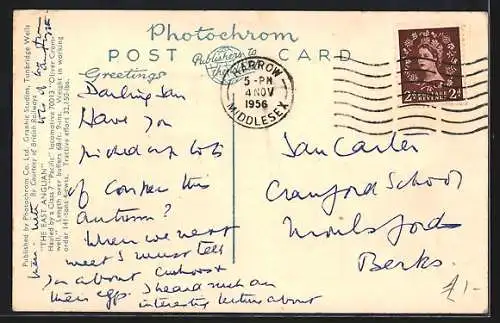 Photochrom
POST CARD
Publishers to
the
HARROW
5-PM
4 NOV
1956
MIDDLESEX
2D POSTAGE REVENUE 2D
Greetings
Darling Jan
Have you
picked up lots
of this
autumn?
When we next
meet I must tell
you about cuckoos &
their eggs. I heard such an
interesting lecture about
them - with lots of
Jan Carter
Cranford School
Moulsford
Berks.
£1-
Published by Photochrom Co. Ltd., Graphic Studios, Tunbridge Wells
By Courtesy of British Railways
"THE EAST ANGLIAN"
Hauled by a Class 7 "Pacific" locomotive 70013 "Oliver Crom-
well." Length over buffers 68-ft. 9-ins. Weight in working
order 141-tons-4cwts. Tractive effort 32,150-lbs.